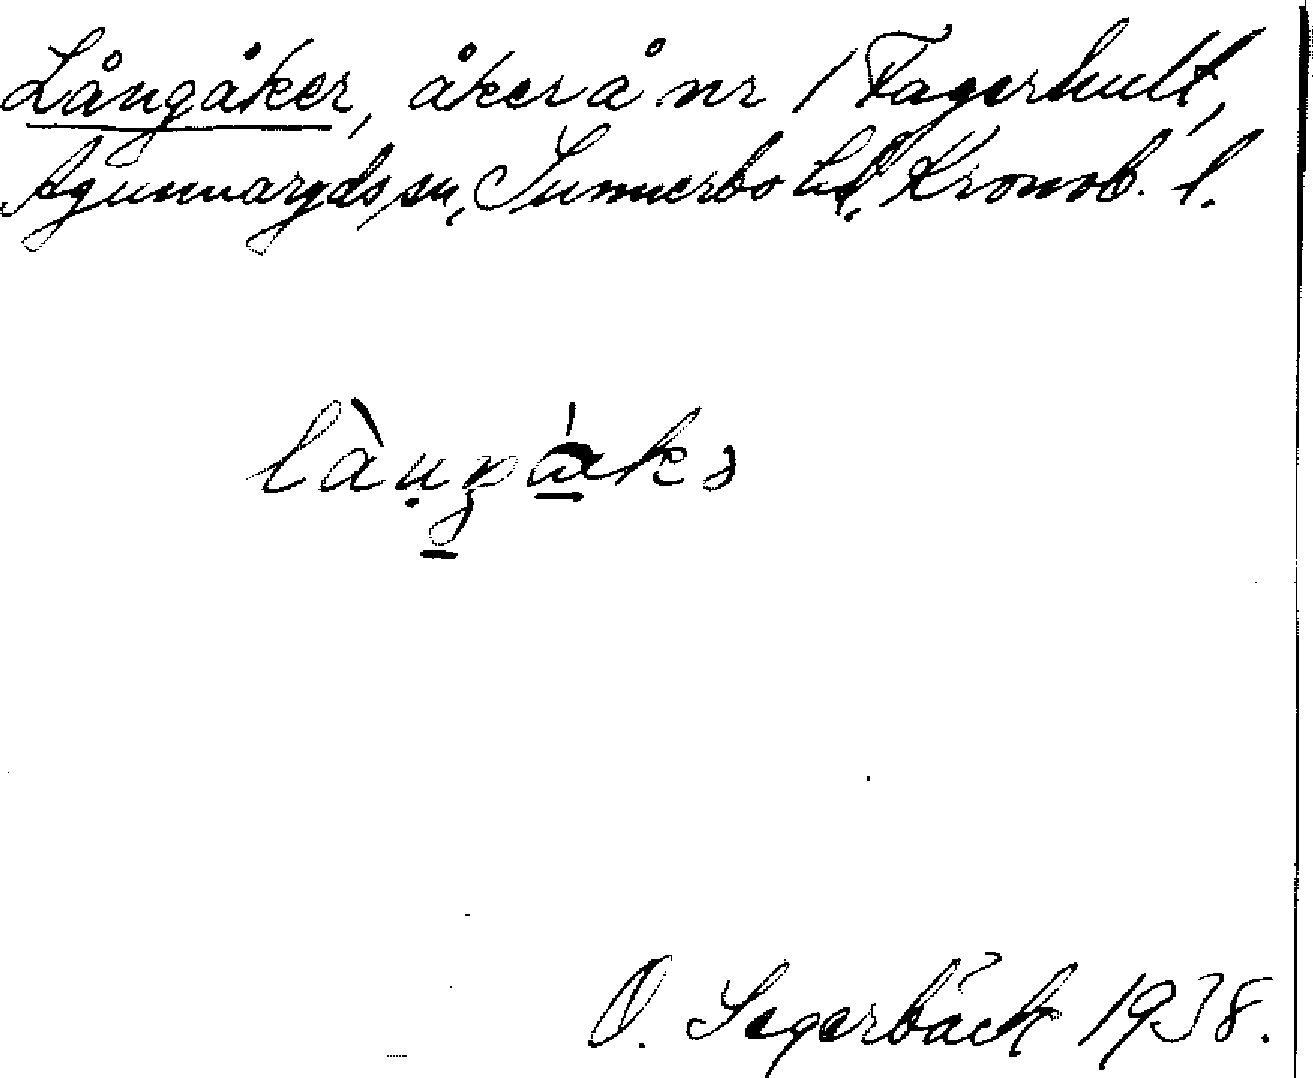 Långåker, åker å nr 1 Fagerhult,
Agunnaryds sn, Sunnerbo hd, Kronob. l.
O. Segerbäck 1938.